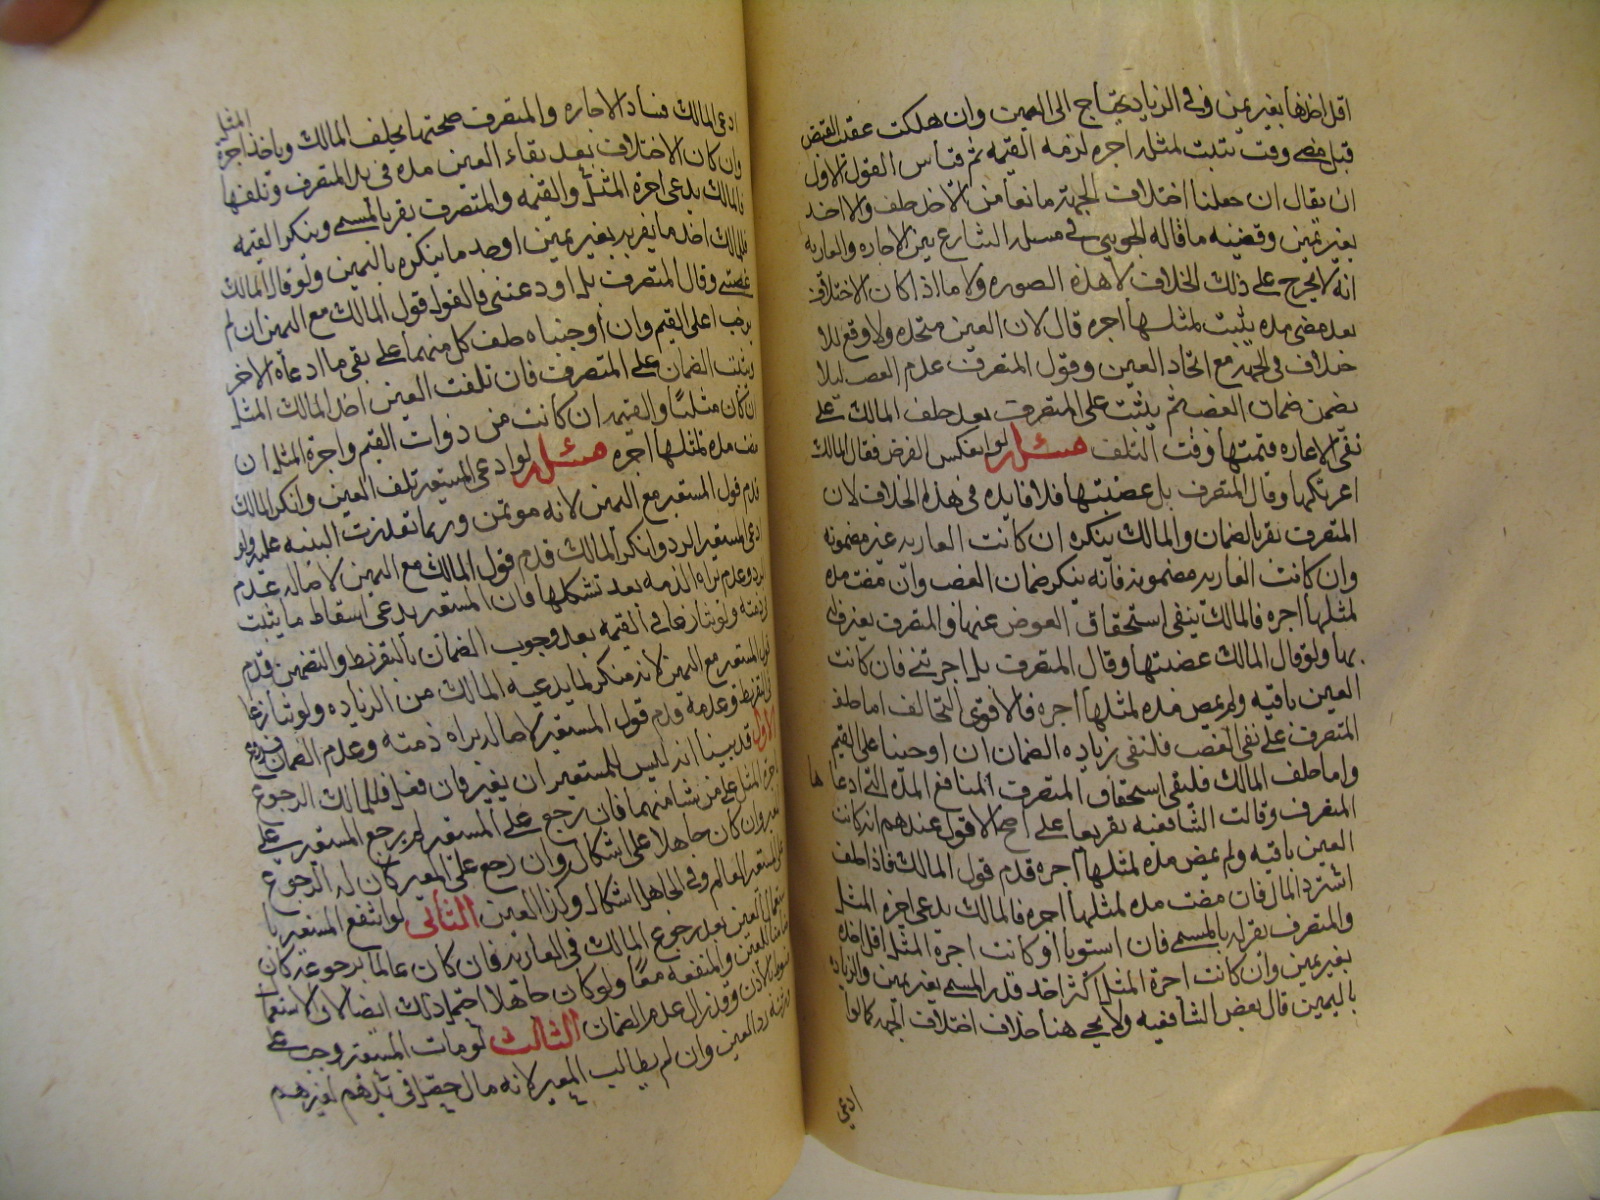 اقل اخذها بغير يمين وفي الزيادة يحتاج الى اليمين وان هلكت عقيب القبض
قبل مضي وقت يثبت لمثله اجره لزمه القيمه ثم قياس القول الاول
ان يقال ان جعلنا اختلاف الجهة مانعا من الاخذ حلف والا اخذ
بغير يمين وقضيه ما قاله الجويني في مسله التنازع بين الاجاره والعاريه
انه لا يخرج على ذلك الخلاف لا هذه الصوره ولا ما اذا كان الاختلاف
بعد مضي مده يثبت لمثلها اجره قال لان العين متحده ولا وقع للا
ختلاف في الجهه مع اتحاد العين وقول المتصرف عدم الغصب ليلا
يضمن ضمان الغصب ثم يثبت على المتصرف بعد حلف المالك على
نفي الاعاره قيمتها وقت التلف مسئله لو انعكس الفرض فقال المالك
اعرتكها وقال المتصرف بل غصبتها فلا فايده في هذه الخلاف لان
المتصرف يقر بالضمان والمالك ينكره ان كانت العاريه غير مضمونه
وان كانت العاريه مضمونه فانه ينكر ضمان الغصب وان مضت مده
لمثلها اجره فالمالك ينفي استحقاق العوض عنها والمتصرف يعترف له
بها ولو قال المالك غصبتها وقال المتصرف بل اجرتني فان كانت
العين باقيه ولم يمض مده لمثلها اجره فالاقوى التحالف اما حلف
المتصرف على نفي الغصب فلنفي زياده الضمان ان اوجبنا على القيم
واما حلف المالك فلنفي استحقاق المتصرف المنافع المده التي ادعا ها
المتصرف وقالت الشافعيه تفريعا على اصح الاقول عندهم انه كانت
العين باقيه ولم يمض مده لمثلها اجره قدم قول المالك فاذا حلف
استرد المال فان مضت مده لمثلها اجره فالمالك يدعي اجرة المثل
والمتصرف يقر له بالمسمى فان استويا او كانت اجرة المثل اقل اخذه
بغير يمين وان كانت اجرة المثل اكثر اخذ قدر المسمى بغير يمين والزياده
باليمين قال بعض الشافعيه ولا يجي هنا خلاف اختلاف الجهه كما لو
ادعى
ادعى المالك فساد الاجاره والمتصرف صحتها يحلف المالك وياخذ اجرة المثل
وان كان الاختلاف بعد بقاء العين مده في يد المتصرف وتلفها
فالمالك يدعي اجرة المثل والقيمه والمتصرف يقر بالمسمى وينكر القيمه
فللمالك اخذ ما يقر به بغير يمين اوخذ ما ينكره باليمين ولو قال المالك
غصبتني وقال المتصرف بل اودعتني فالقول قول المالك مع اليمين ان لم
يوجب اعلى القيم وان اوجبناه حلف كل منهما على نفي ما ادعاه الاخر
ويثبت الضمان على المتصرف فان تلفت العين اخذ المالك المثل
ان كان مثليا والقيمه ان كانت من ذوات القيم واجرة المثل ان
مضت مده لمثلها اجره مسئله لو ادعى المستعير تلف العين وانكر المالك
قدم قول المستعير مع اليمين لانه موتمن وربما تعذرت البينه عليه ولو
ادعى المستعير الرد وانكر المالك قدم قول المالك مع اليمين لاصاله عدم
الرد وعدم براه الذمه بعد شغلها فان المستعير يدعي اسقاط ما يثبت
في ذمته ولو تنازعا في القيمه بعد وجوب الضمان بالتفريط والتضمين قدم
قول المستعير مع اليمين لانه منكر لما يدعيه المالك من الزياده ولو تنازعا
في التفريط وعدمه قدم قول المستعير لاصاله براه ذمته وعدم الضمان فروع
الاول قد بينا انه ليس للمستعير ان يعير فان فعل فللمالك الرجوع
باجرة المثل على من شا منهما فان رجع على المستعير لم يرجع المستعير على
المعير وان كان جاهلا على اشكال وان رجع على المعير كان له الرجوع
على المستعير العالم وفي الجاهل اشكال وكذا العين الثاني لو انتفع المستعير با
ستعمال العين بعد رجوع المالك في العاريه فان كان عالما برجوعه كان
ضامنا للعين والمنفعه معا ولو كان جاهلا احتمل ذلك ايضا لان الاستعما
مشروط بالاذن وقد زال عدم الضمان الثالث لو مات المستعير وجب على
ورثته رد العين وان لم يطالب المعير لانه مال حصل في يدهم لغيرهم